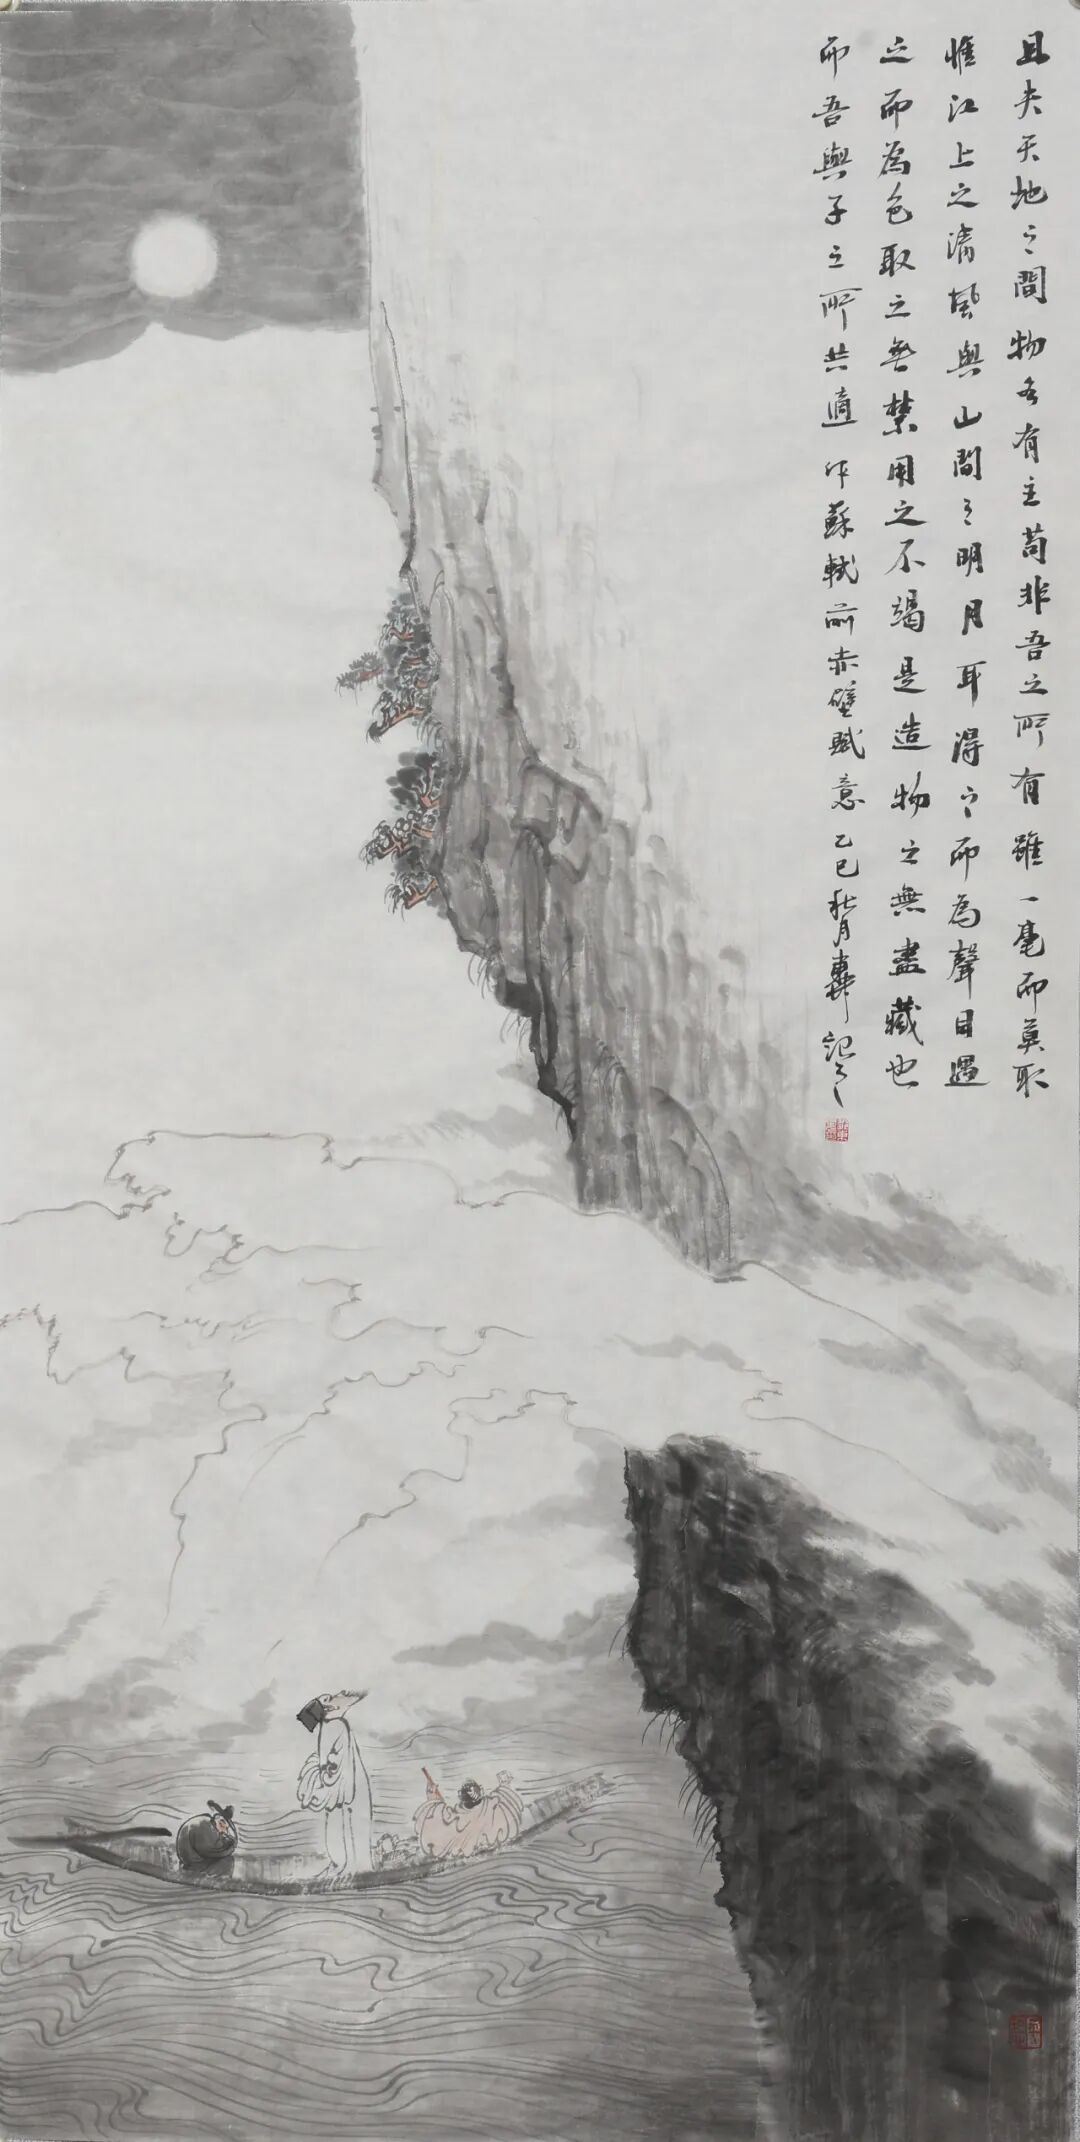 且夫天地之間物各有主苟非吾之所有雖一毫而莫取
惟江上之清風與山間之明月耳得之而為聲目遇
之而為色取之無禁用之不竭是造物之無盡藏也
而吾與子之所共適 作蘇軾前赤壁賦意 乙巳秋月 記之